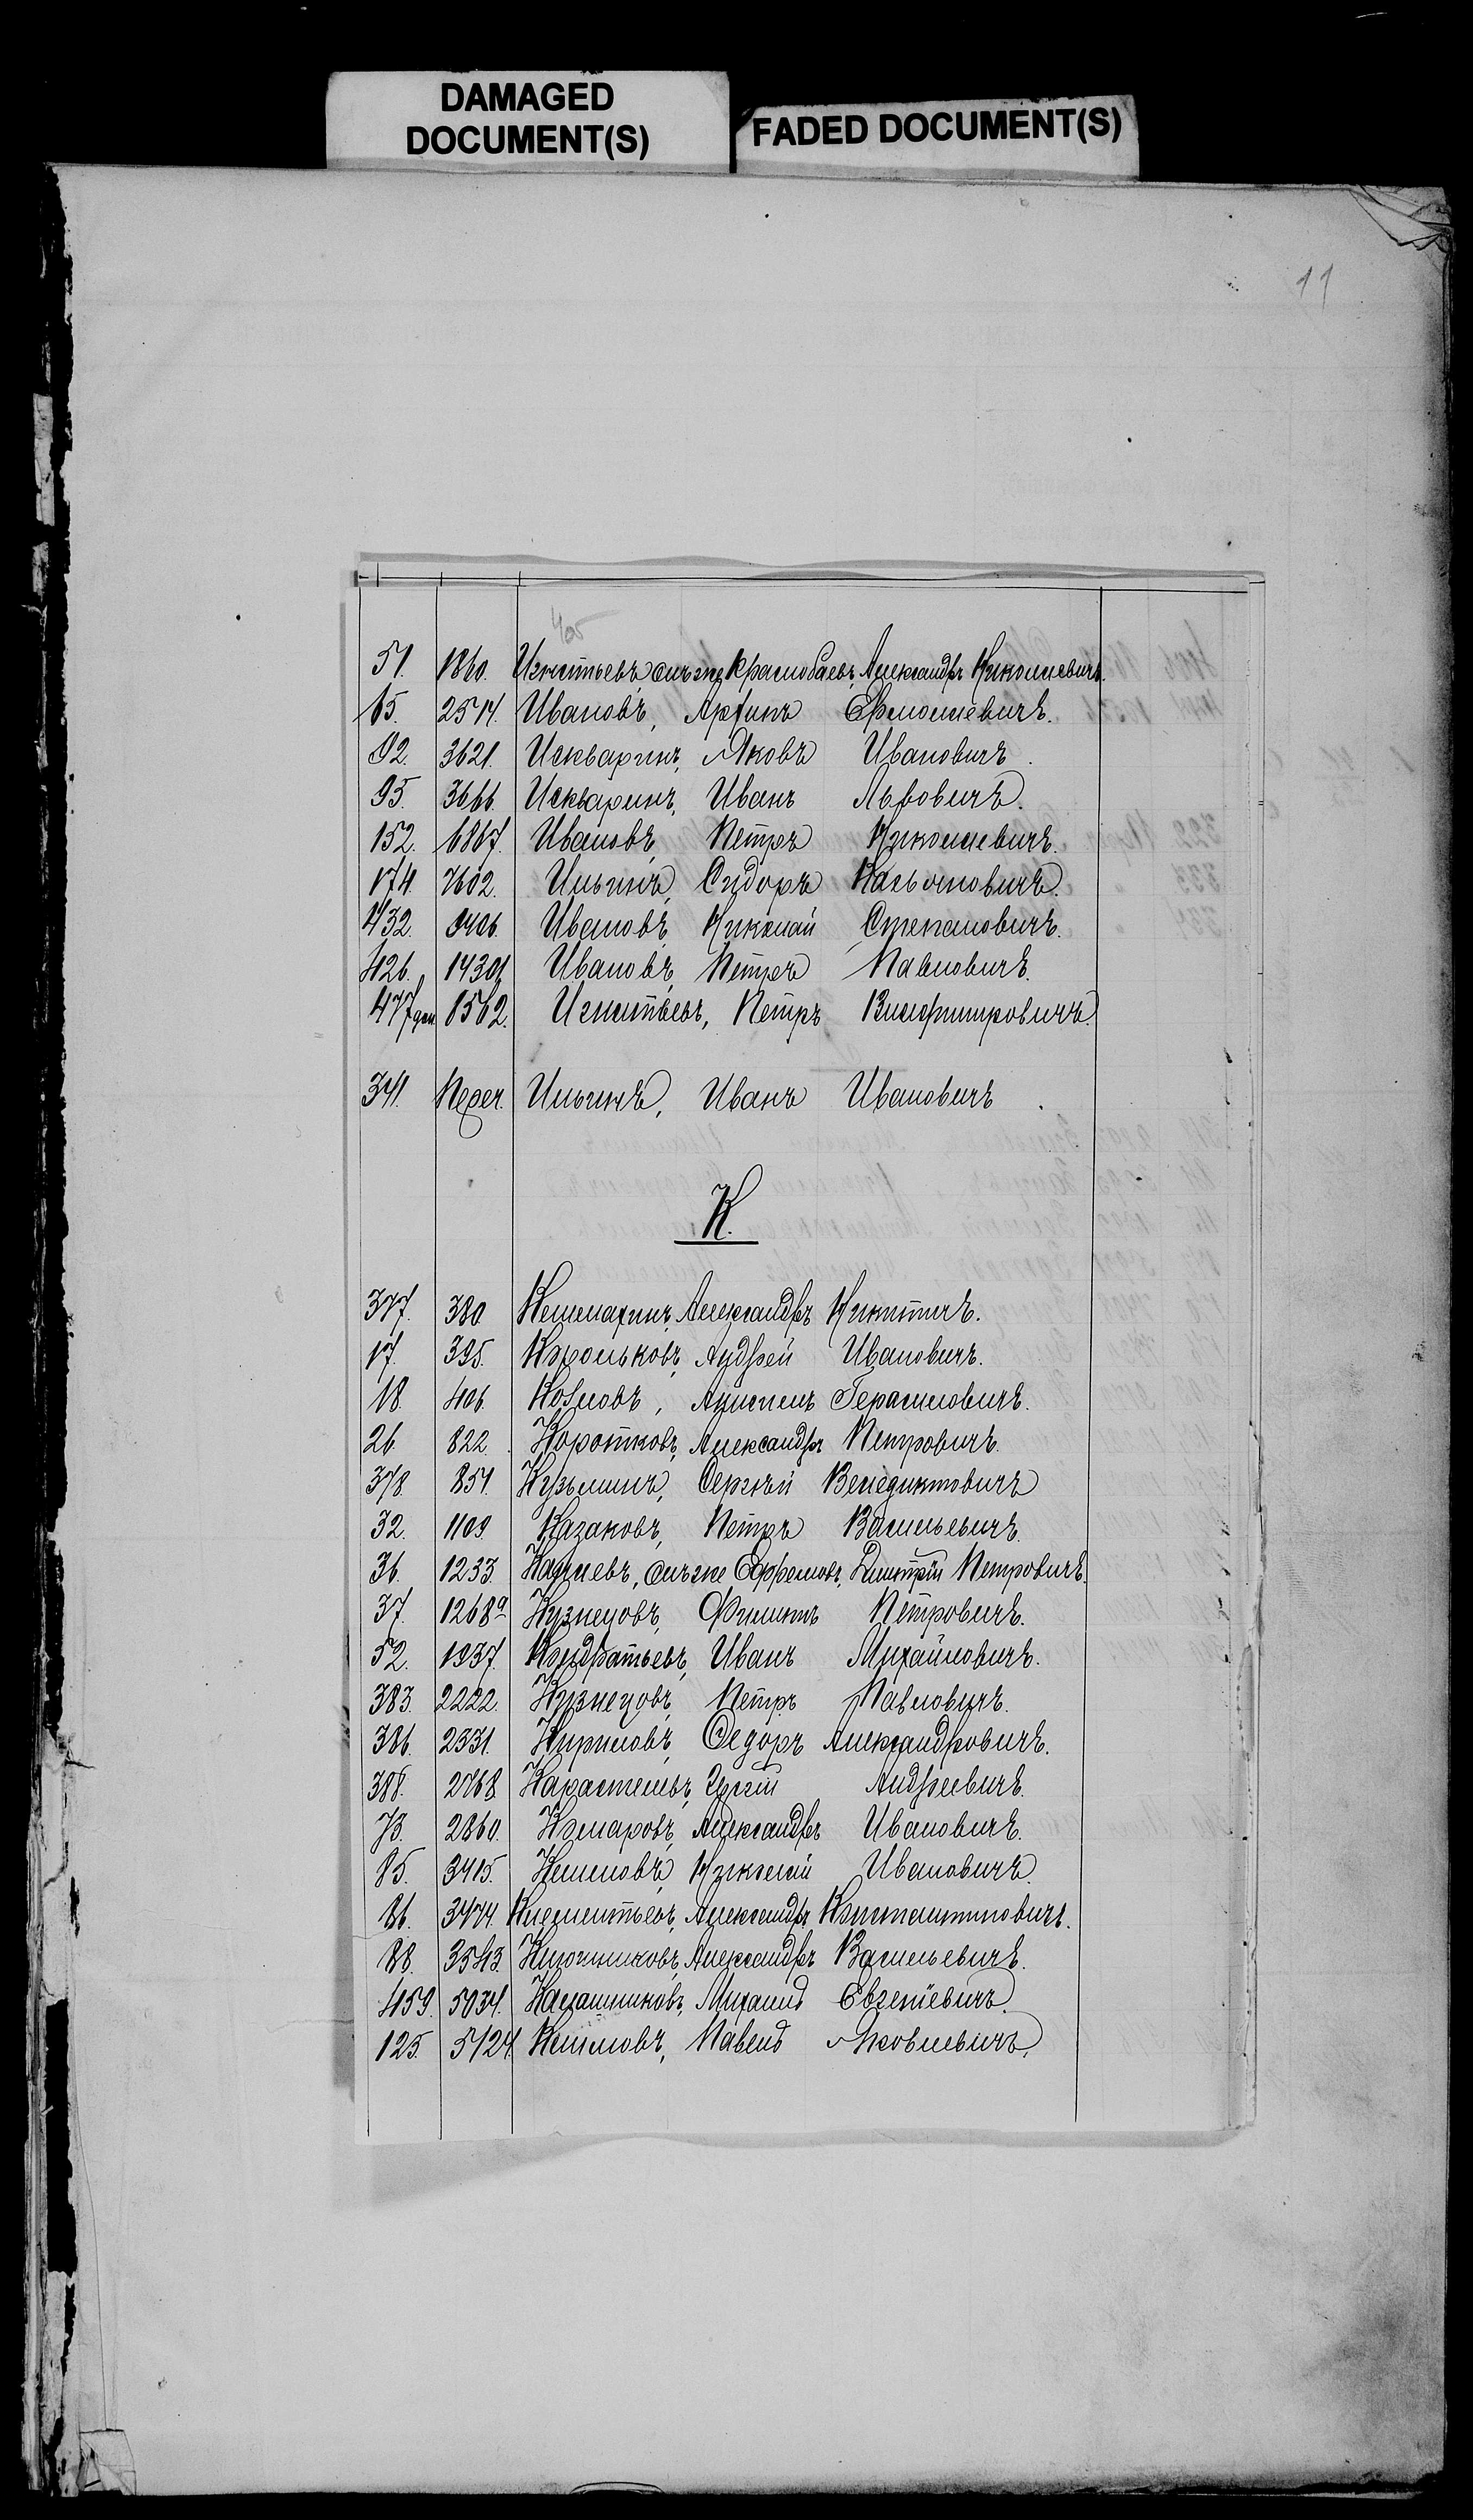 DAMAGED
DOCUMENT(S)
FADED DOCUMENT(S)
11
405
51. 1860. Игнатьевъ онъ же Краснобаевъ, Александръ Николаевичъ.
65. 2514. Ивановъ, Архипъ Ермолаевичъ.
92. 3621. Искваринъ, Яковъ Ивановичъ.
95. 3666. Искваринъ, Иванъ Львовичъ.
152. 6867. Ивановъ, Петръ Николаевичъ.
174. 7602. Ильинъ, Сидоръ Касьяновичъ.
432. 9406. Ивановъ, Николай Степановичъ.
426. 14301 Ивановъ, Петръ Павловичъ.
477 доп. 8562. Игнатьевъ, Петръ
341. Переч. Ильинъ, Иванъ Ивановичъ.
К.
377. 380 Александръ Никитичъ.
17. 395. Корольковъ, Андрей Ивановичъ.
18. 406. Козловъ, Герасимовичъ.
26. 822. Коротковъ, Александръ Петровичъ.
378. 851. Кузьминъ, Сергѣй Венедиктовичъ
32. 1109. Казаковъ, Петръ Васильевичъ.
36. 1233. онъ же Ефремовъ, Дмитрій Петровичъ.
37. 1268а Кузнецовъ, Филиппъ Петровичъ.
52. 1937. Кондратьевъ, Иванъ Михайловичъ.
383. 2222. Кузнецовъ, Петръ Павловичъ.
386. 2331. Кириловъ, Федоръ Александровичъ.
388. 2768. Андреевичъ.
73. 2860. Комаровъ, Александръ Ивановичъ.
85. 3415. Николай Ивановичъ.
86. 3474. Клементьевъ, Александръ Константиновичъ.
88. 3543. Ключниковъ, Александръ Васильевичъ.
459. 5034. Калашниковъ, Михаилъ Евгеніевичъ.
125. 5124. Павелъ Яковлевичъ.